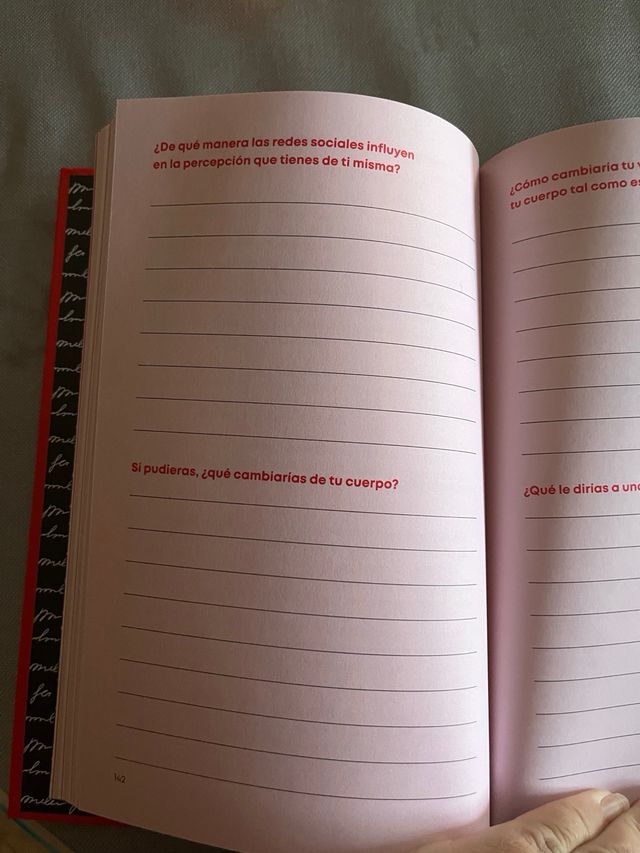 ¿De qué manera las redes sociales influyen
en la percepción que tienes de ti misma?
Si pudieras, ¿qué cambiarías de tu cuerpo?
142
¿Cómo cambiaria tu
tu cuerpo tal como
¿Qué le dirias a